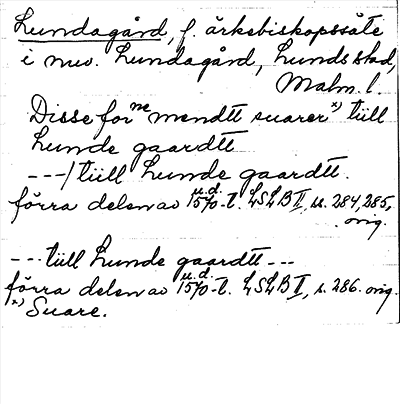 Lundagård, f. ärkebiskopssäte
i nuv. Lundagård, Lunds stad,
Malm. l.
Disse for me mendtt suarer x) tiill
Lunde gaardtt
---/ tiill Lunde gaardtt.
u.d.
förra delen av 1570-t. LSLB II, s. 284, 285,
orig.
--- tiill Lunde gaardtt ---
u.d.
förra delen av 1570-t. LSLB II, s. 286. orig.
x) Suare.